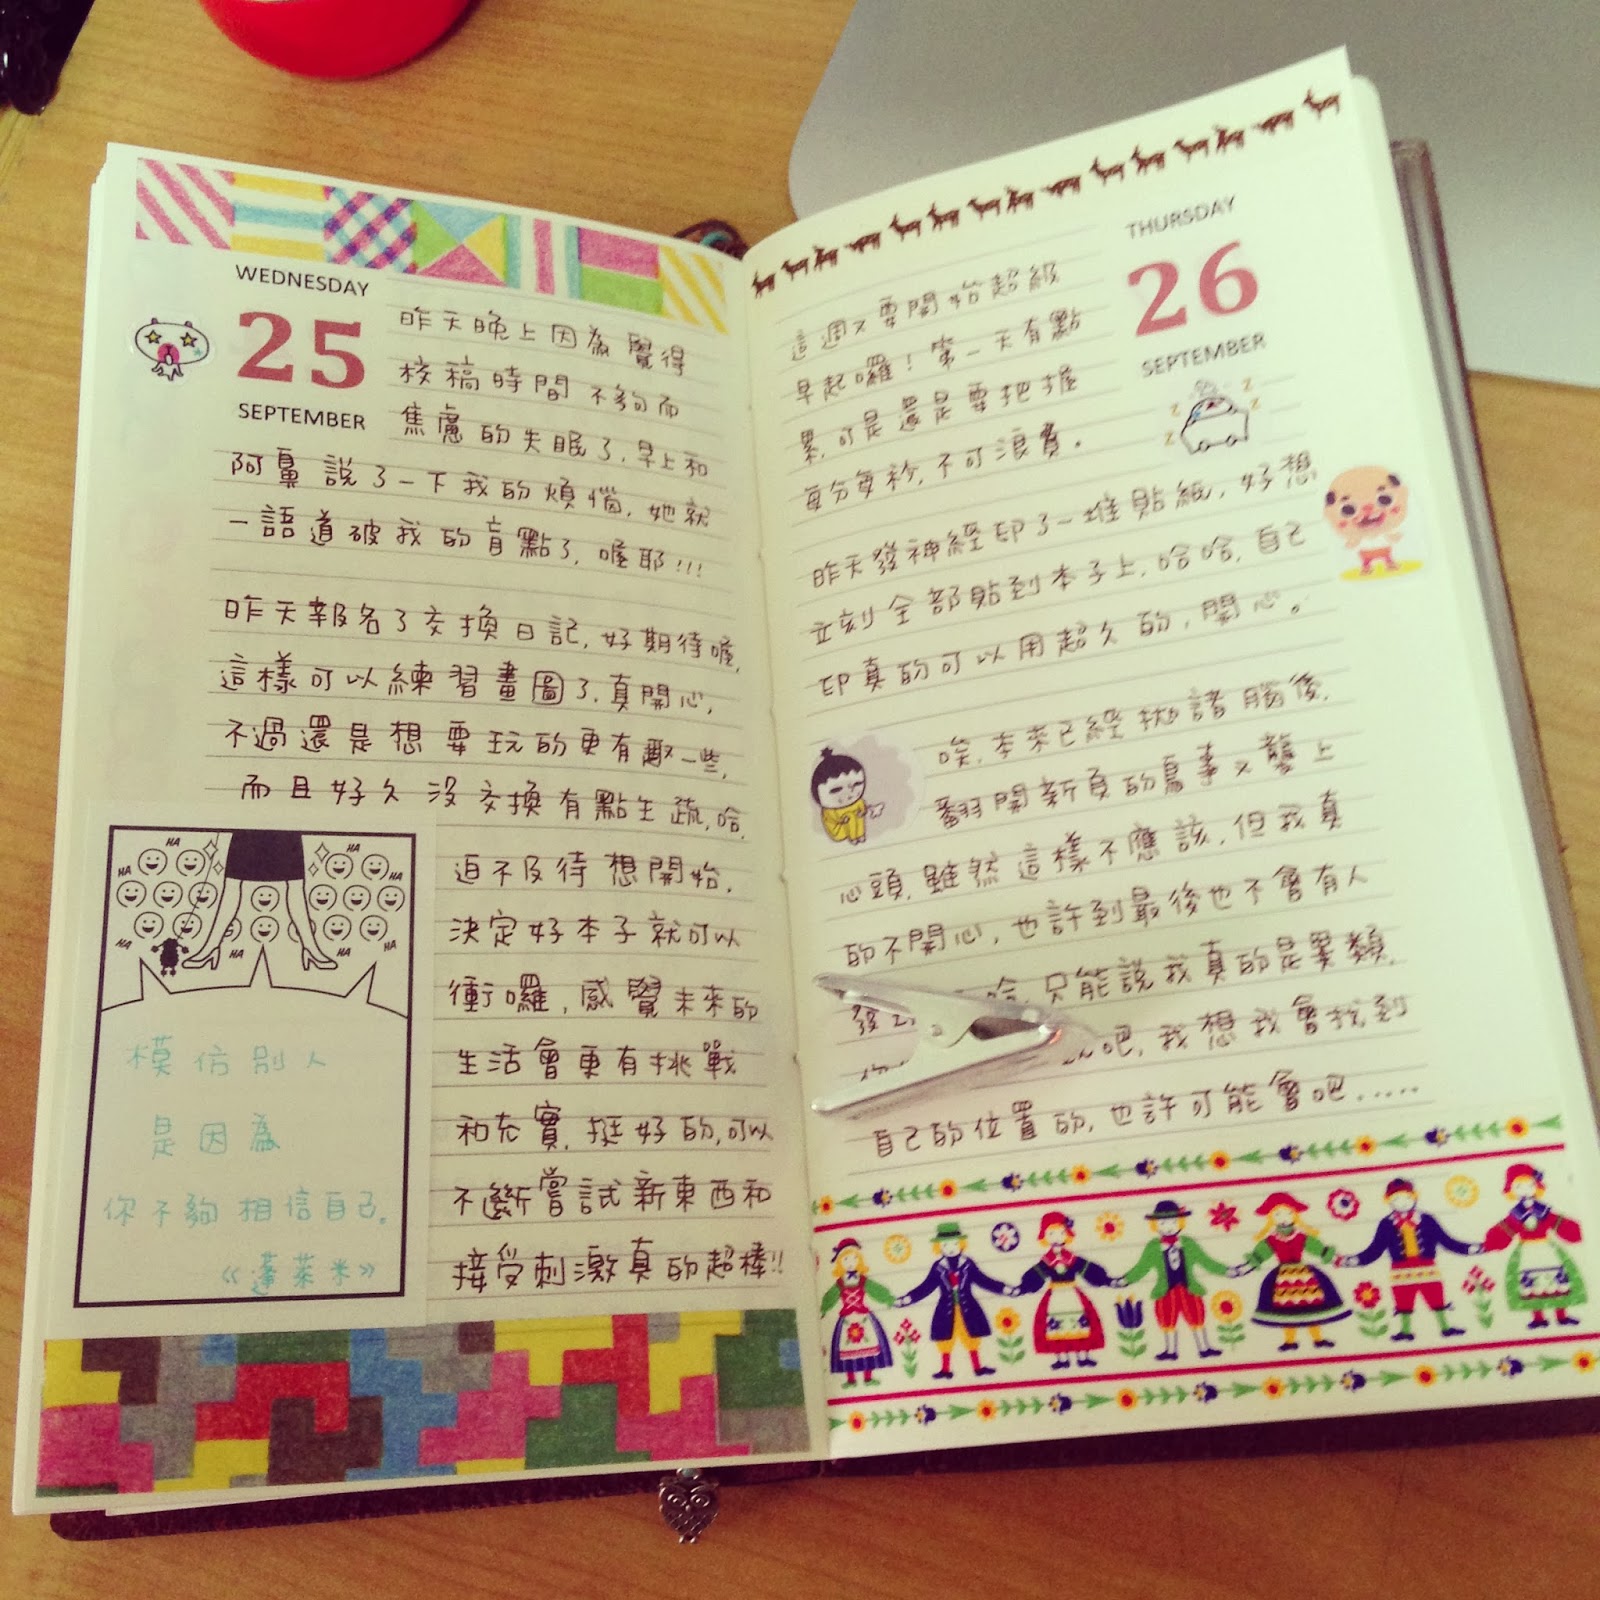 WEDNESDAY
25
SEPTEMBER
昨天晚上因為覺得
校稿時間不夠而
焦慮的失眠了,早上和
阿鼻說了一下我的煩惱,她就
一語道破我的盲點了,喔耶!!!
昨天報名了交換日記,好期待喔,
這樣可以練習畫圖了,真開心,
不過還是想要玩的更有趣一些,
而且好久沒交換有點生疏,哈,
迫不及待想開始,
決定好本子就可以
衝囉,感覺未來的
生活會更有挑戰
和充實,挺好的,可以
不斷嘗試新東西和
接受刺激真的超棒!!
HA
HA
HA
HA
HA
HA
模仿別人
是因為
你不夠相信自己。
《蓬萊米》
THURSDAY
26
SEPTEMBER
這週又要開始超級
早起囉!第一天有點
累,可是還是要把握
每分每秒,不可浪費。
z
z
z
z
昨天發神經印了一堆貼紙,好想
立刻全部貼到本子上,哈哈,自己
印真的可以用超久的,開心。
唉,本來已經拋諸腦後,
翻開新頁的鳥事又襲上
心頭,雖然這樣不應該,但我真
的不開心,也許到最後也不會有人
發 哈,只能說我真的是異類,
吧,我想我會找到
自己的位置的,也許可能會吧......